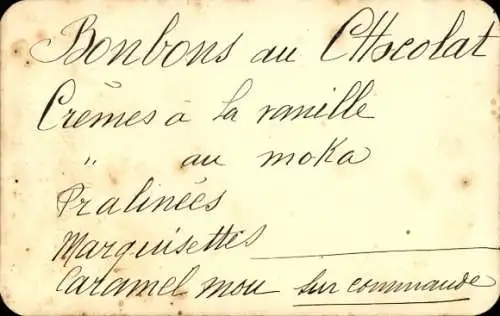 Bonbons au Chocolat
Crèmes à la vanille
" au moka
Pralinées
Marquisettes
Caramel mou sur commande